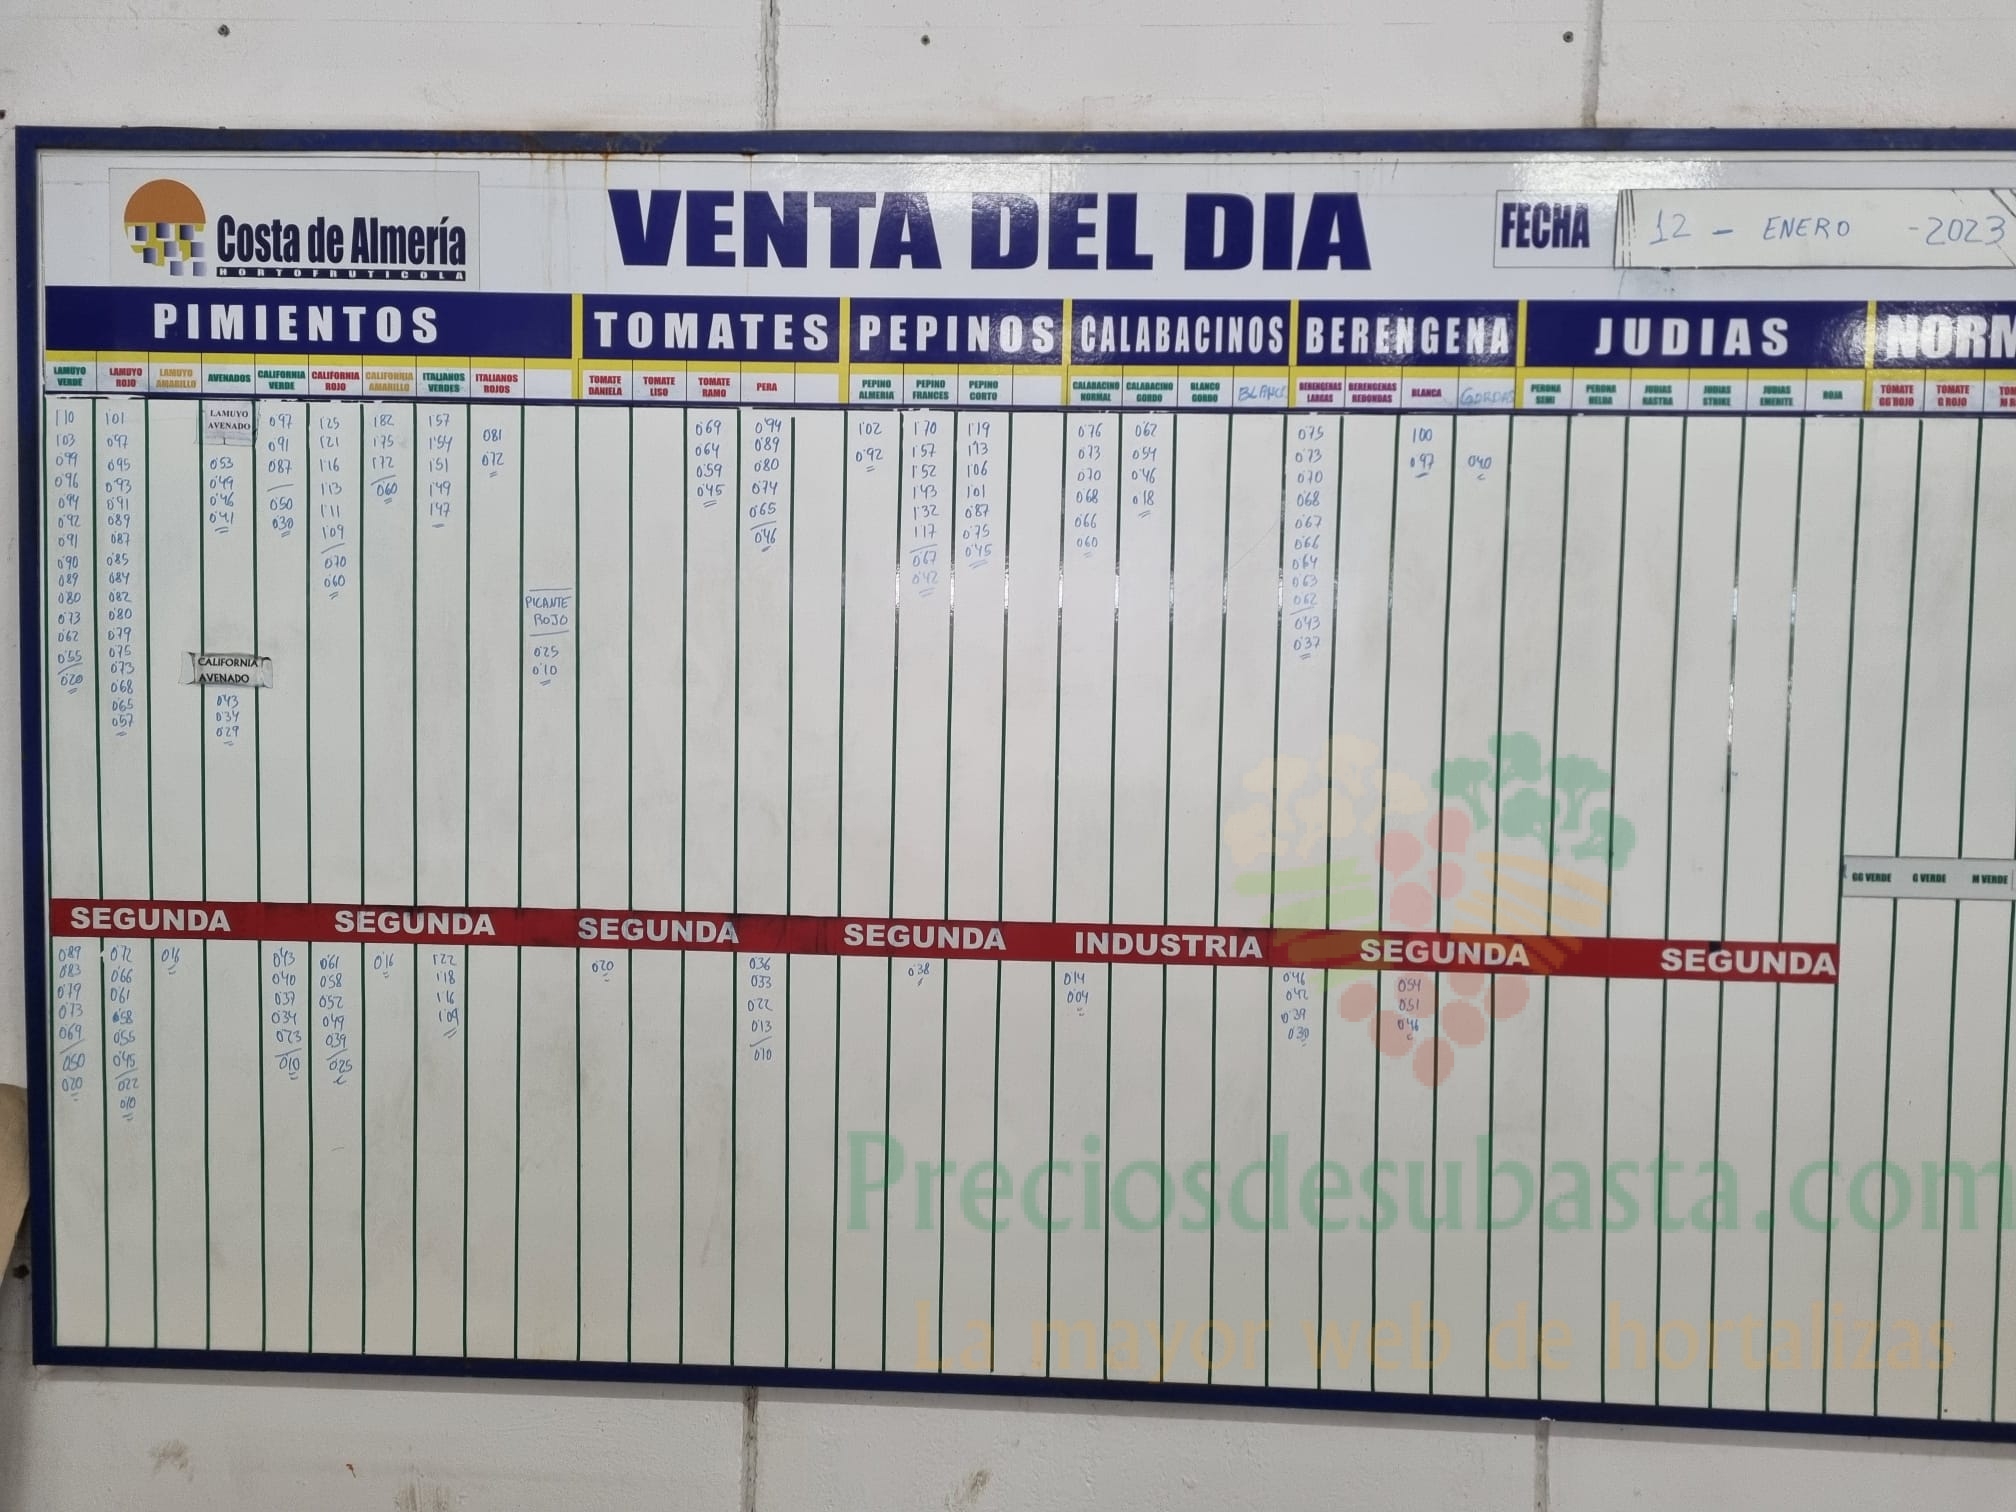 Costa de Almería
HORTOFRUTICOLA
VENTA DEL DIA
FECHA
12 - ENERO -2023
PIMIENTOS
TOMATES
PEPINOS
CALABACINOS
BERENGENA
JUDIAS
NORM
LAMUYO VERDE
LAMUYO ROJO
LAMUYO AMARILLO
AVENADOS
CALIFORNIA VERDE
CALIFORNIA ROJO
CALIFORNIA AMARILLO
ITALIANOS VERDES
ITALIANOS ROJOS
TOMATE DANIELA
TOMATE LISO
TOMATE RAMO
PERA
PEPINO ALMERIA
PEPINO FRANCES
PEPINO CORTO
CALABACINO NORMAL
CALABACINO GORDO
BLANCO GORDO
BLANCO
BERENGENAS LARGAS
BERENGENAS REDONDAS
BLANCA
GORDAS
PERONA SEMI
PERONA HELDA
JUDIAS RASTRA
JUDIAS STRIKE
JUDIAS EMERITE
ROJA
TOMATE GG ROJO
TOMATE G ROJO
1'10
1'03
0'99
0'96
0'94
0'92
0'91
0'90
0'89
0'80
0'73
0'62
0'55
0'20
1'01
0'97
0'95
0'93
0'91
0'89
0'87
0'85
0'84
0'82
0'80
0'79
0'75
0'73
0'68
0'65
0'57
LAMUYO
AVENADO
0'53
0'49
0'46
0'41
CALIFORNIA
AVENADO
0'43
0'34
0'29
0'97
0'91
0'87
0'50
0'30
1'25
1'21
1'16
1'13
1'11
1'09
0'70
0'60
1'82
1'75
1'72
0'60
1'57
1'54
1'51
1'49
1'47
0'81
0'72
PICANTE
ROJO
0'25
0'10
0'69
0'64
0'59
0'45
0'94
0'89
0'80
0'74
0'65
0'46
1'02
0'92
1'70
1'57
1'52
1'43
1'32
1'17
0'67
0'42
1'19
1'13
1'06
1'01
0'87
0'75
0'45
0'76
0'73
0'70
0'68
0'66
0'60
0'62
0'54
0'46
0'18
0'75
0'73
0'70
0'68
0'67
0'66
0'64
0'63
0'62
0'43
0'37
1'00
0'97
0'40
GG VERDE
G VERDE
M VERDE
SEGUNDA
SEGUNDA
SEGUNDA
SEGUNDA
INDUSTRIA
SEGUNDA
SEGUNDA
0'89
0'83
0'79
0'73
0'69
0'50
0'20
0'72
0'66
0'61
0'58
0'55
0'45
0'22
0'10
0'16
0'43
0'40
0'37
0'34
0'23
0'10
0'61
0'58
0'52
0'49
0'39
0'25
0'16
1'22
1'18
1'16
1'09
0'20
0'36
0'33
0'22
0'13
0'10
0'38
0'14
0'04
0'46
0'42
0'39
0'30
0'54
0'51
0'46
Preciosdesubasta.com
La mayor web de hortalizas